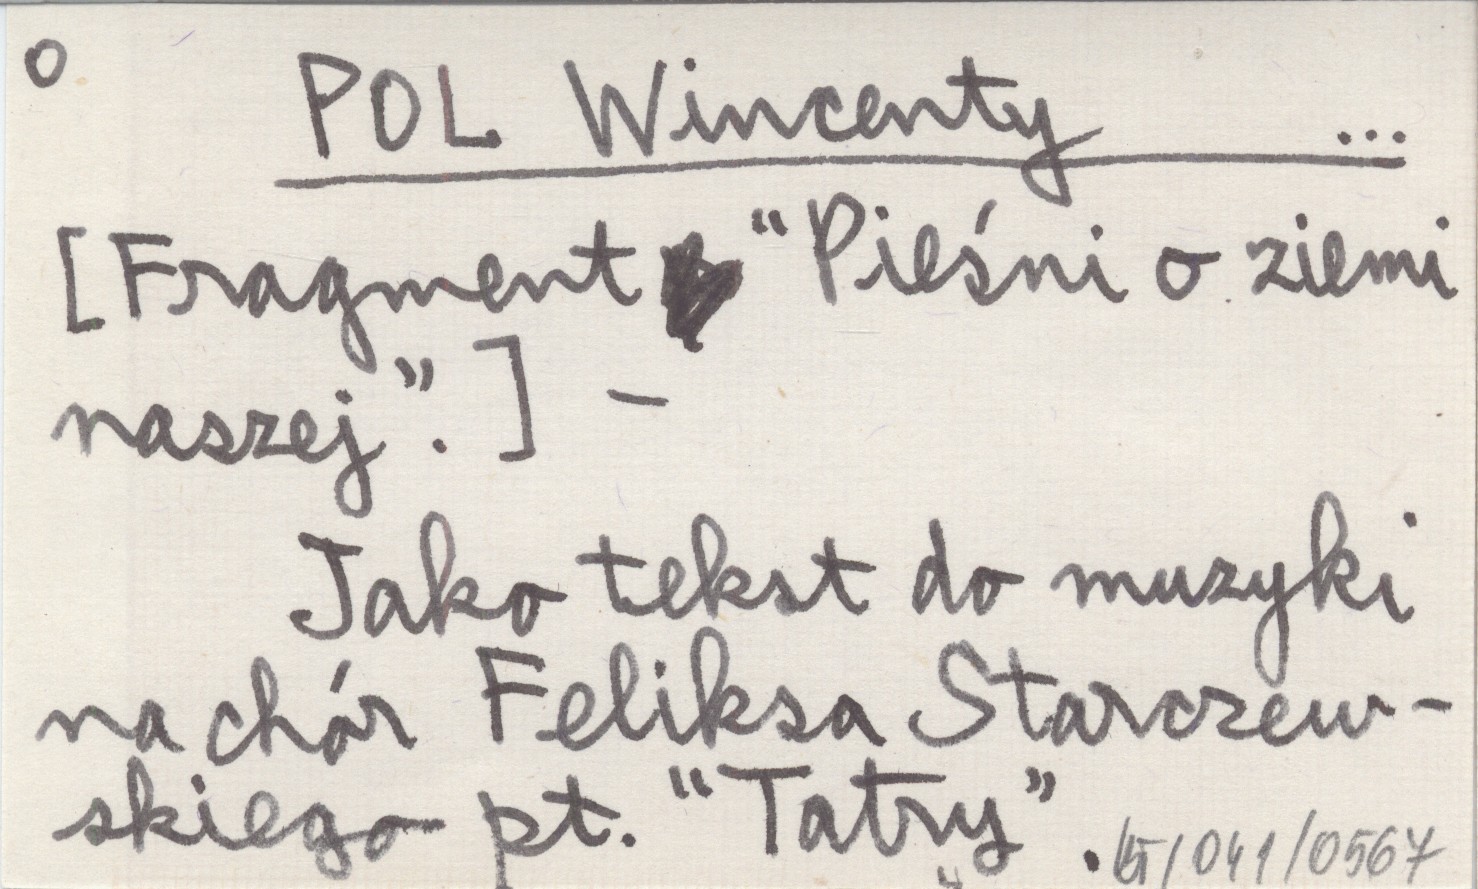 o
POL Wincenty ...
[Fragment "Pieśni o ziemi
naszej".] –
Jako tekst do muzyki
na chór Feliksa Starczew-
skiego pt. "Tatry".
/041/0567